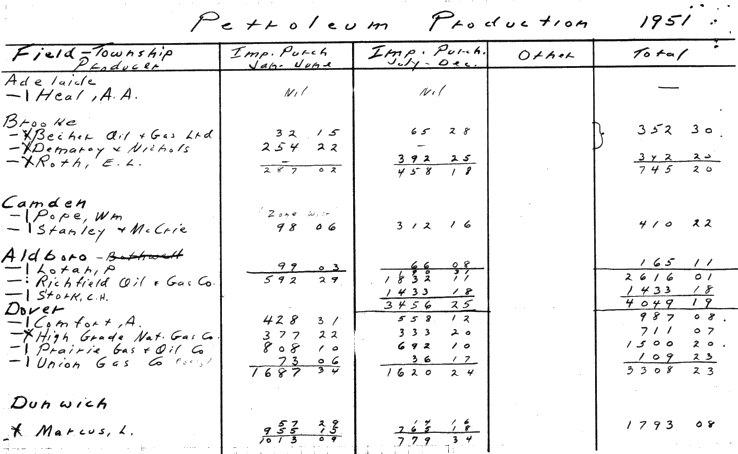 Petroleum Production 1951
Field-Township Producer Imp. Purch Jan-June Imp. Purch. July-Dec. Other Total
Adelaide
-1 Heal, A.A. Nil Nil —
Brooke
-X Becher Oil & Gas Ltd 32 15 65 28 352 30
-X Demaray & Nichols 254 22 -
-X Roth, E.L. - 392 25 392 25
287 02 458 18 745 20
Camden
-1 Pope, Wm
-1 Stanley & McCrie 98 06 312 16 410 22
Aldboro - Bothwell
-1 Lotan, P 99 03 66 08 165 11
Richfield Oil & Gas Co. 592 29 1832 11 2616 01
-1 Stork, C.H. 1433 18 1433 18
3456 25 4049 19
Dover
-1 Comfort, A. 428 31 558 12 987 08
-X High Grade Nat. Gas Co. 377 22 333 20 711 07
-1 Prairie Gas & Oil Co 808 10 692 10 1500 20
-1 Union Gas Co 73 06 36 17 109 23
1687 34 1620 24 3308 23
Dunwich
57 29 14 16
X Marcus, L. 955 15 765 18 1793 08
1013 09 779 34